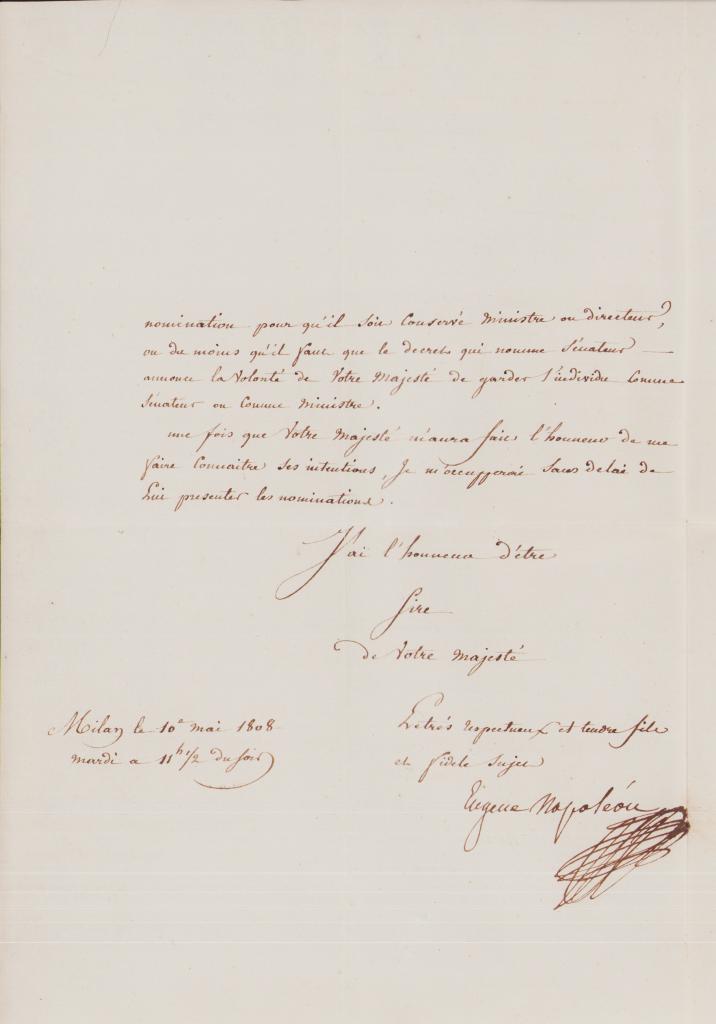 nomination pour qu'il soit Conservé Ministre ou directeur,
ou du moins qu'il faut que le decret qui nomme Sénateur —
annonce la Volonté de Votre Majesté de garder l'individu Comme
Sénateur ou Comme Ministre.
une fois que Votre Majesté m'aura fait l'honneur de me
faire Connaitre Ses intentions, Je m'occupperai Sans delai de
Lui presenter les nominations.
J'ai l'honneur d'être
Sire
de Votre Majesté
Milan le 10e mai 1808
mardi a 11h 1/2 du soir
Le trés respectueux et tendre fils
et fidele Sujet
Eugene Napoléon